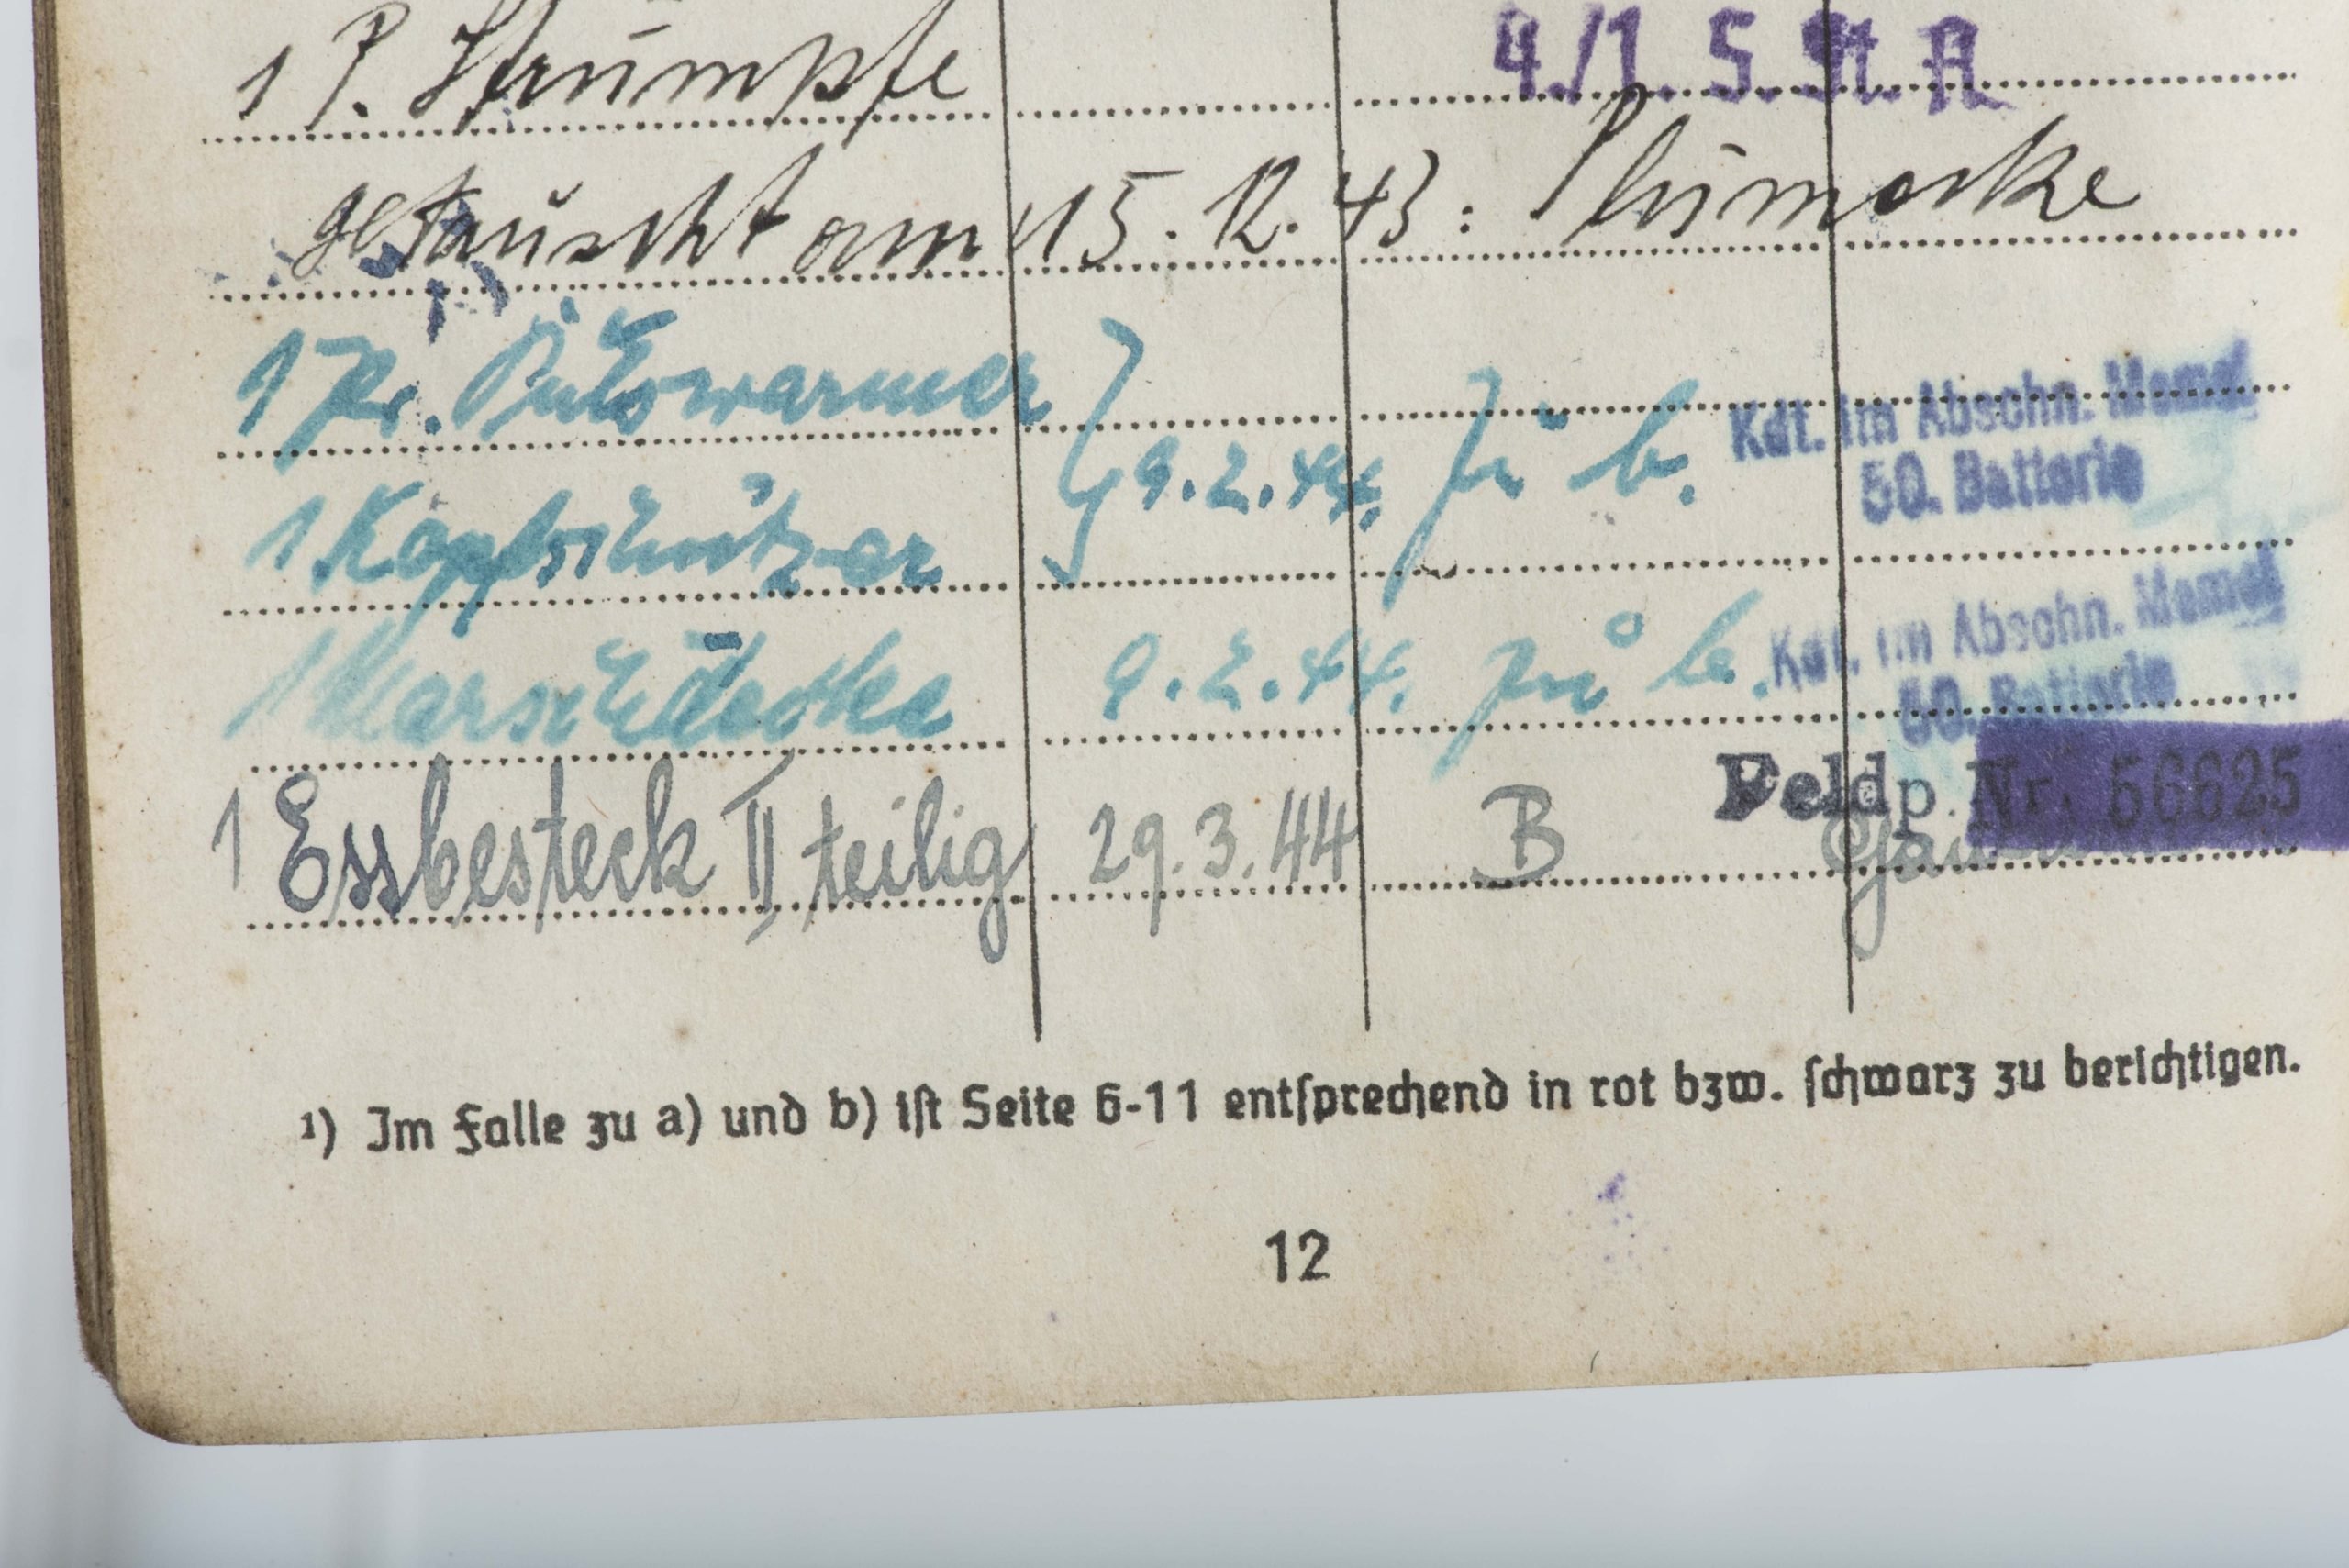 1 P. Strümpfe 4./1. S. St. A
getauscht am 15. 12. 43:
1 Pr. Pulswärmer
Kdt. im Abschn. Memel
9.2.44. b. 50. Batterie
1 Kopfschützer
Kdt. im Abschn. Memel
1 Marschdecke 9.2.44. b. 50. Batterie
1 Essbesteck II teilig 29.3.44 B Feldp. Nr. 56625
¹) Im Falle zu a) und b) iſt Seite 6-11 entſprechend in rot bzw. ſchwarz zu berichtigen.
12